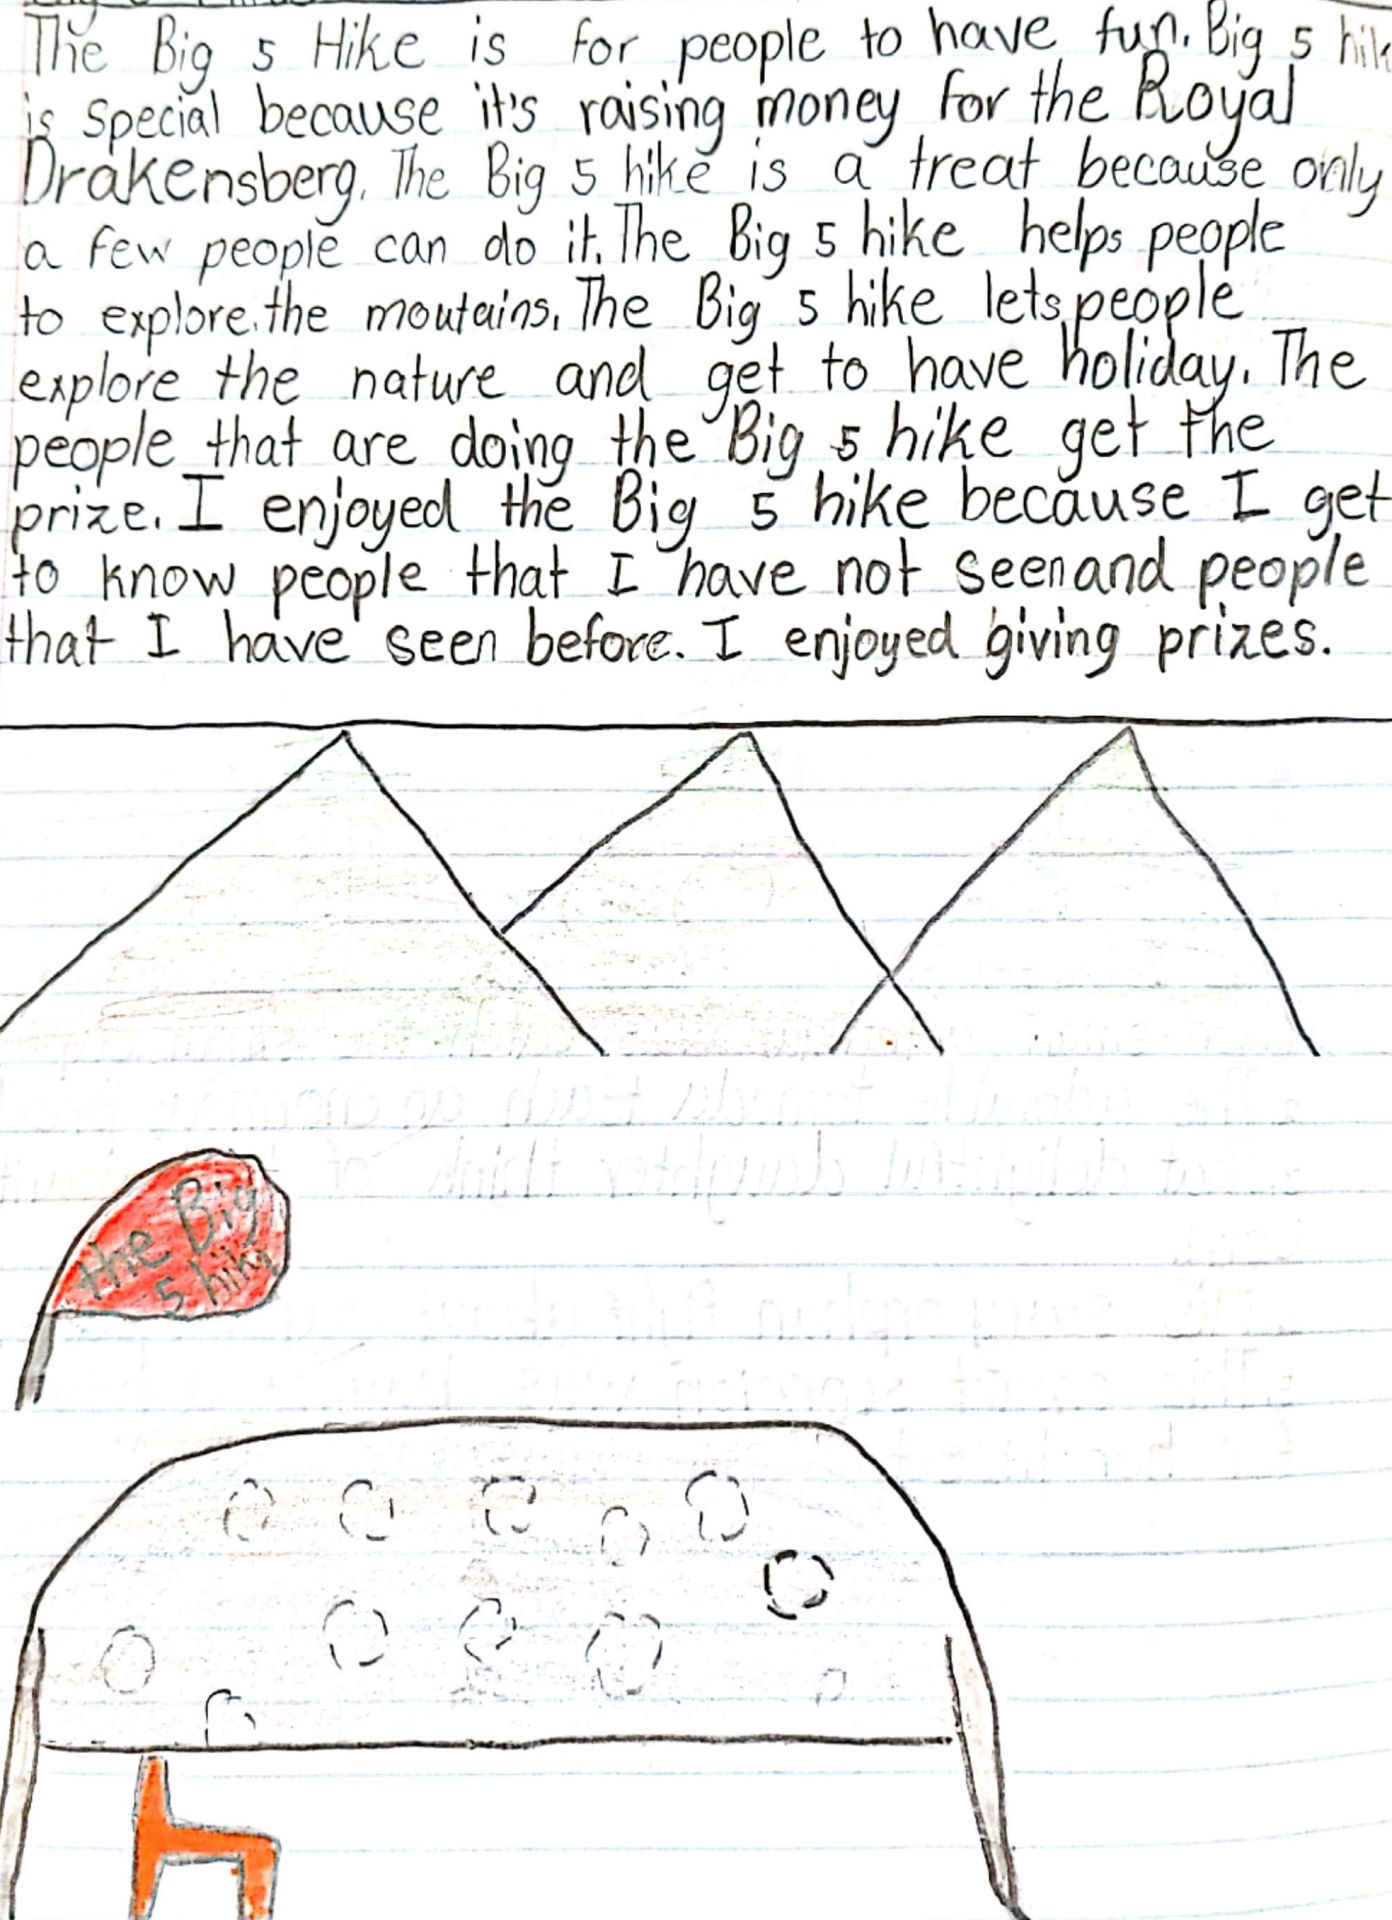 The Big 5 Hike is for people to have fun. Big 5 hik
is special because it's raising money for the Royal
Drakensberg. The Big 5 hike is a treat because only
a few people can do it. The Big 5 hike helps people
to explore. the moutains. The Big 5 hike lets people
explore the nature and get to have holiday. The
people that are doing the Big 5 hike get the
prize. I enjoyed the Big 5 hike because I get
to know people that I have not seen and people
that I have seen before. I enjoyed giving prizes.
the Big
5 hike